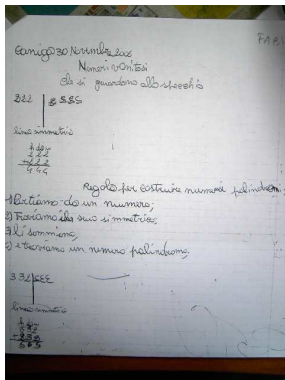 Canigo 30 Novembre 2006
Numeri vanitosi
che si guardano allo specchio
322
linea simmetria
h da u
222
+ 222
444
Regola per costruire numeri palindromi:
1) Partiamo da un numero;
2) Troviamo il suo simmetrico;
3) li sommiamo;
e troviamo un numero palindromo;
332
linea simmetria
h da u